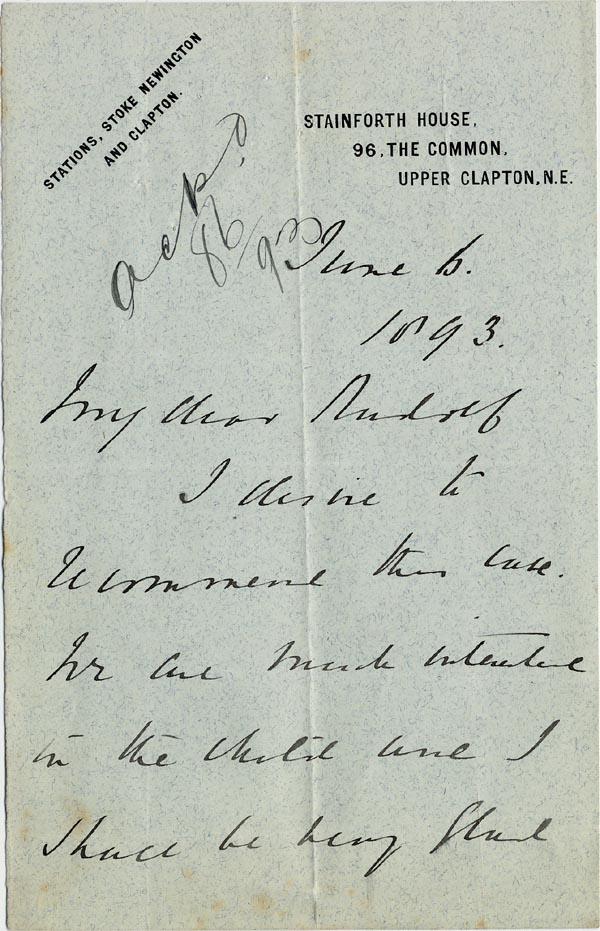 STATIONS, STOKE NEWINGTON
AND CLAPTON.
STAINFORTH HOUSE,
96, THE COMMON,
UPPER CLAPTON, N.E.
ackd
8/6/93
June 6.
1893.
My dear Rudolf
I desire to
recommend this case.
We are much interested
in the child and I
shall be very glad